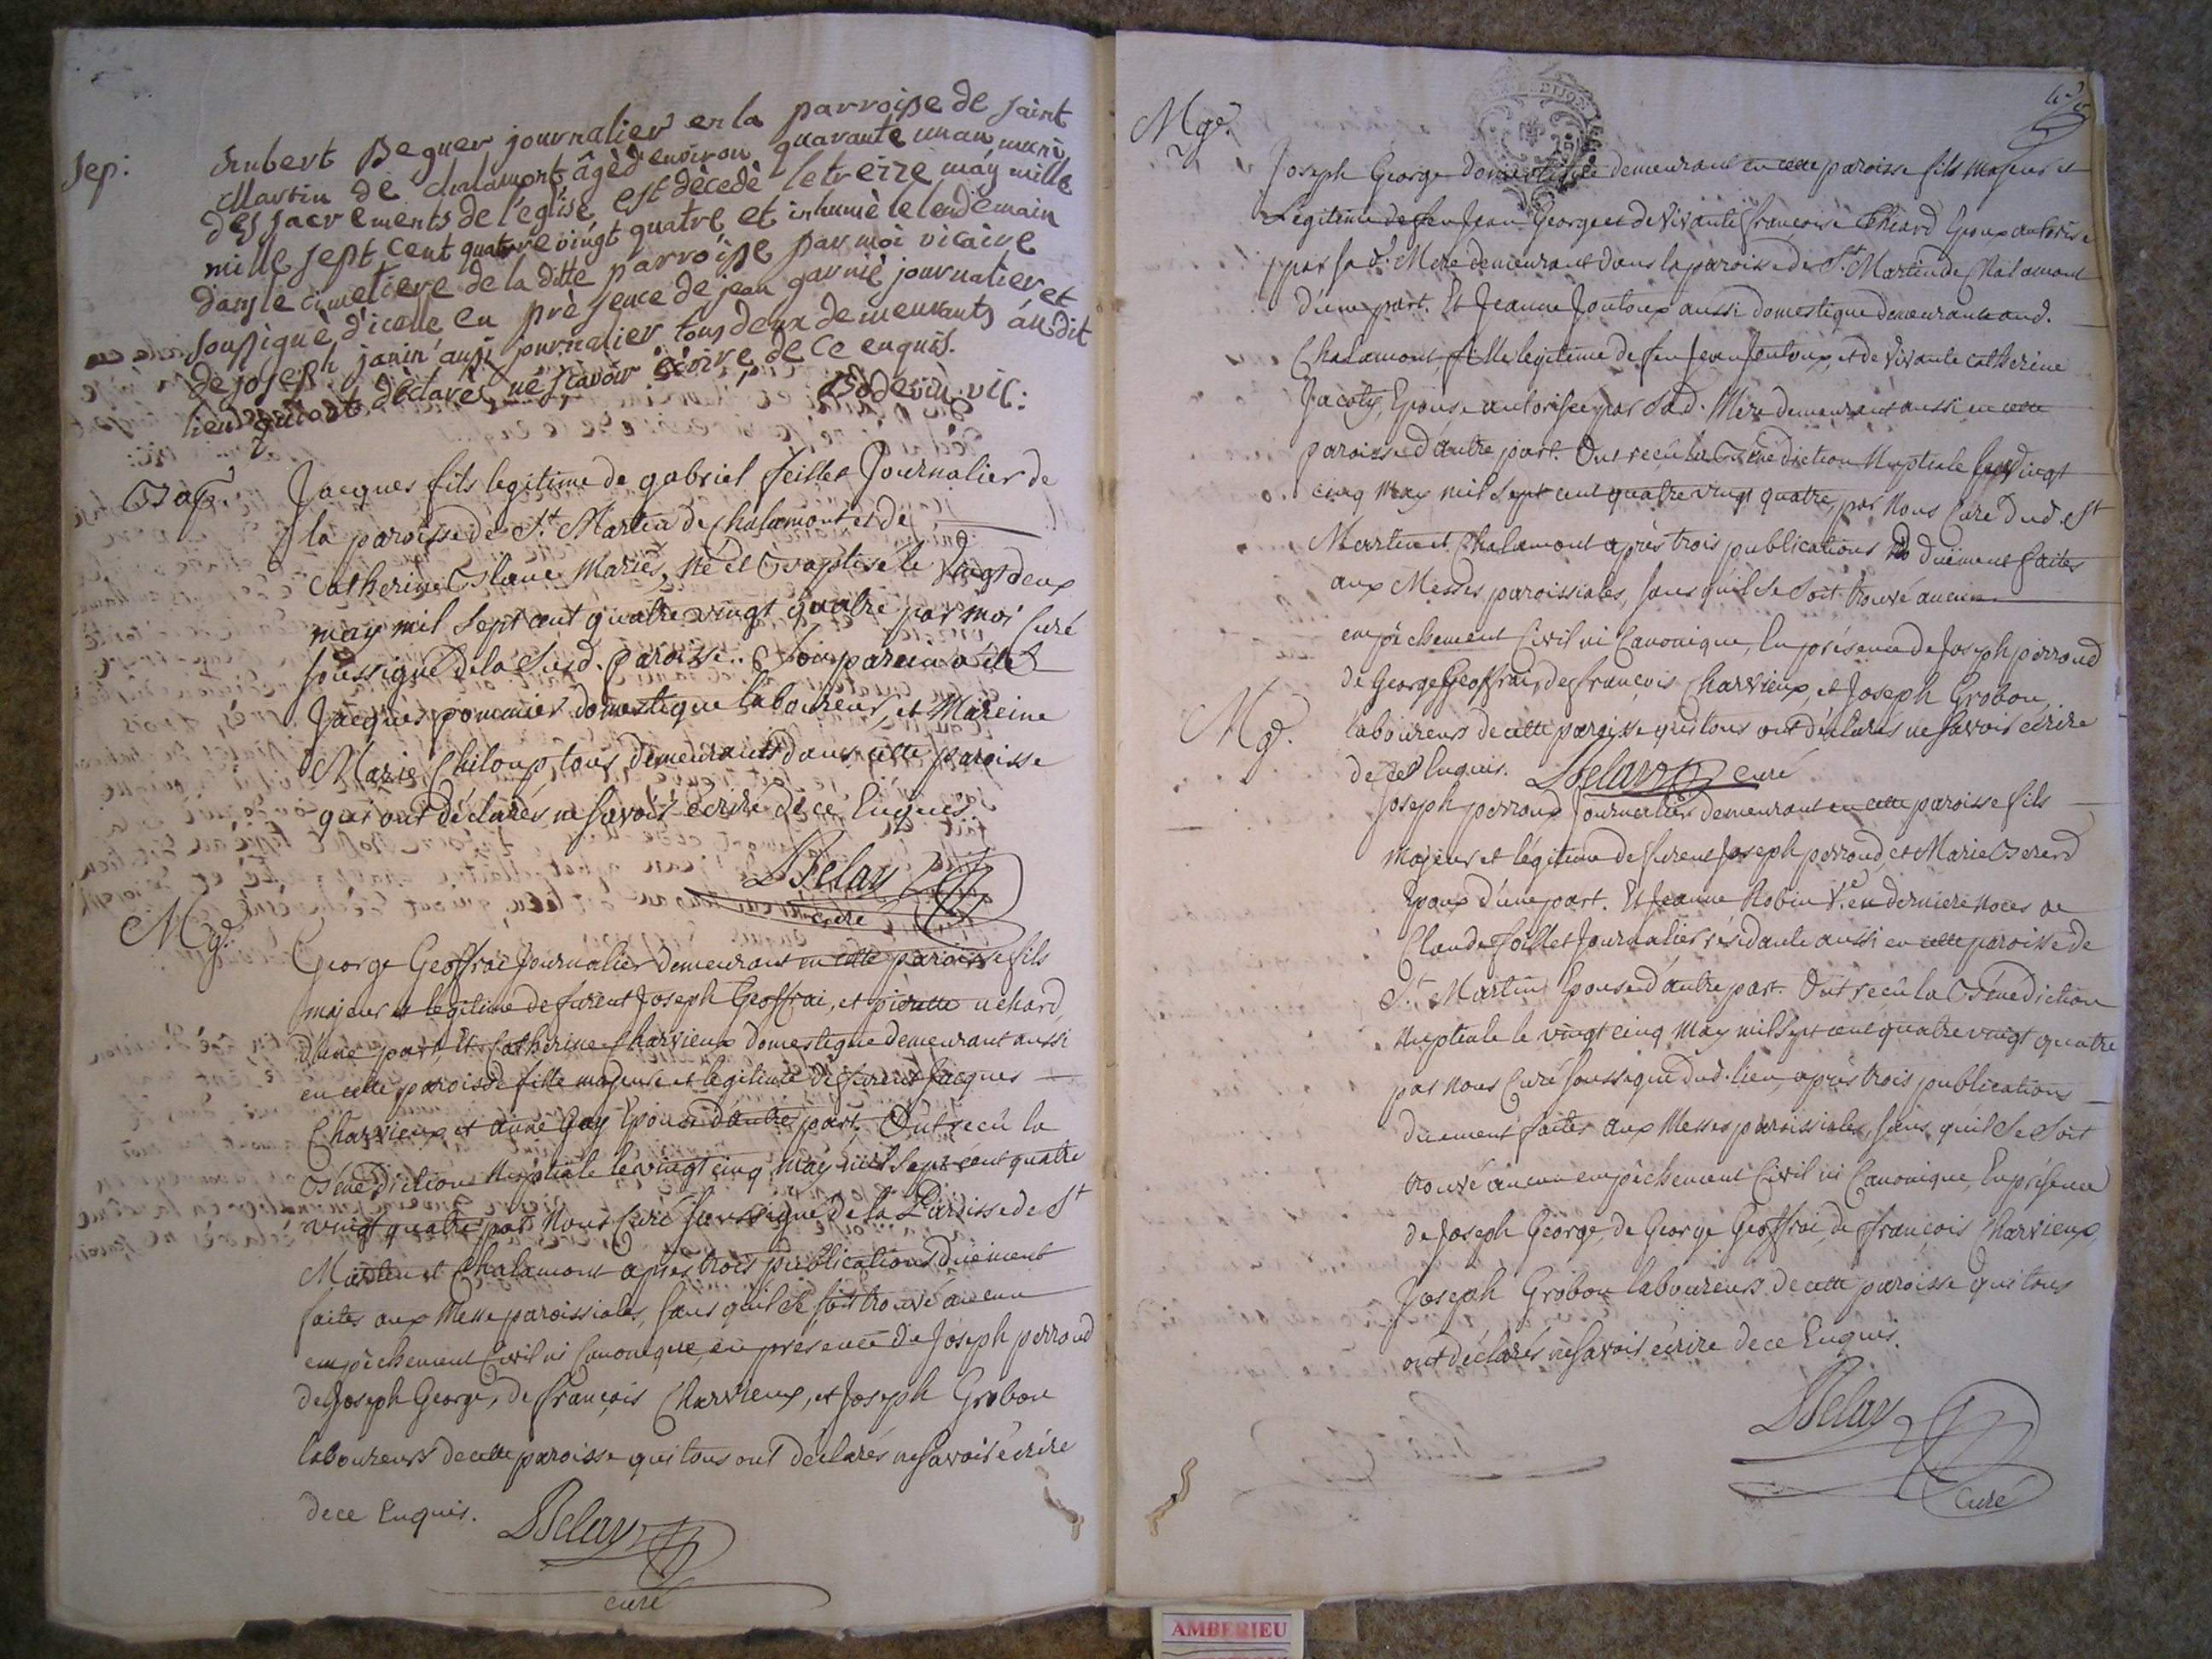 Sep:
humbert Beguer journalier en la parroisse de saint
Martin de chalamont âgé d'environ quarante un an muni
des sacrements de l'eglise est dècedè le treize may mille
mille sept cent quatre vingt quatre et inhumè le lendemain
dans le cimetiere de la ditte parroisse par moi vicaire
soussignè d'icelle en prèsence de jean garniè journalier et
de joseph janin aussi journalier tous deux demeurants au dit
lieu qui ont dèclarès ne scavoir ècrire, de ce enquis.
Boderin vic:
Bap.
Jacques fils legitime de gabriel feillet Journalier de
la paroisse de St. Martin de Chalamont et de
Catherine Mariés, né et Baptisé le Vingt deux
may mil Sept cent quatre vingt quatre par moi Curé
soussigné de la Susd. Paroisse. Son parein a été
Jacques pommier domestique laboureur, et Mareine
Marie Chiloup tous demeurants dans cette paroisse
qui ont déclarés ne savoir écrire de ce Enquis.
Belay
curé
Mge.
George Geoffrai Journalier demeurant en cette paroisse fils
majeur et légitime de furent Joseph Geoffrai, et pierrette uchard
d'une part, Et Catherine Charvieux domestique demeurant aussi
en cette paroisse fille majeure et legitime de furent Jacques
Charvieux et anne Gay Epouse d'autre part. Ont reçû la
Bénédiction Nuptiale le vingt cinq may mil Sept cent quatre
vingt quatre par Nous Curé Soussigné de la Paroisse de St
Martin et Chalamont après trois publications duëment
faites aux Messe paroissiales, sans qu'il se soit trouvé aucun
empêchement Civil ni Canonique, en présence de Joseph perroud
de Joseph George, de françois Charvieux, et Joseph Grobon
laboureurs de cette paroisse qui tous ont déclarés ne savoir écrire
de ce Enquis.
Belay
curé
Mge.
Joseph George Domestique demeurant en cette paroisse fils majeur et
Légitime de feu Jean George et de Vivante francoise Chiard Epoux autorisé
par sa d. Mere demeurant dans la paroisse de St. Martin de Chalamont
d'une part. Et Jeanne Joutoux aussi domestique demeurante aud.
Chalamont, fille legitime de feu Jean Joutoux, et de Vivante Catherine
Jacoty, Epouse autorisée par Sa d. Mere demeurant aussi en cette
paroisse d'autre part. Ont reçû la Bénédiction Nuptiale le Vingt
cinq May mil Sept cent quatre vingt quatre, par Nous Curé dud. St
Martin et Chalamont après trois publications duëment faites
aux Messes paroissiales, sans qu'il Se Soit trouvé aucun
empêchement Civil ni Canonique, En présence de Joseph perroud
de George Geoffrai, de françois Charvieux, et Joseph Grobon
Mge.
laboureurs de cette paroisse qui tous ont déclarés ne savoir écrire
de ce Enquis. Belay curé
Joseph perroud Journalier demeurant en cette paroisse fils
Majeur et légitime de furent Joseph perroud, et Marie Berard
Epoux d'une part. Et Jeanne Robin Ve. en derniere Noces de
Claude feillet Journalier résidante aussi en cette paroisse de
St. Martin Epouse d'autre part. Ont reçû la Bénédiction
Nuptiale le vingt cinq May mil Sept cent quatre vingt quatre
par Nous Curé soussigné dud. lieu, après trois publications
duement faites aux Messes paroissiales, sans qu'il Se Soit
trouvé aucun empêchement Civil ni Canonique, En présence
de Joseph George, de George Geoffrai, de françois Charvieux,
Joseph Grobon laboureurs de cette paroisse qui tous
ont déclarés ne Savoir écrire de ce Enquis.
Belay
curé
AMBERIEU